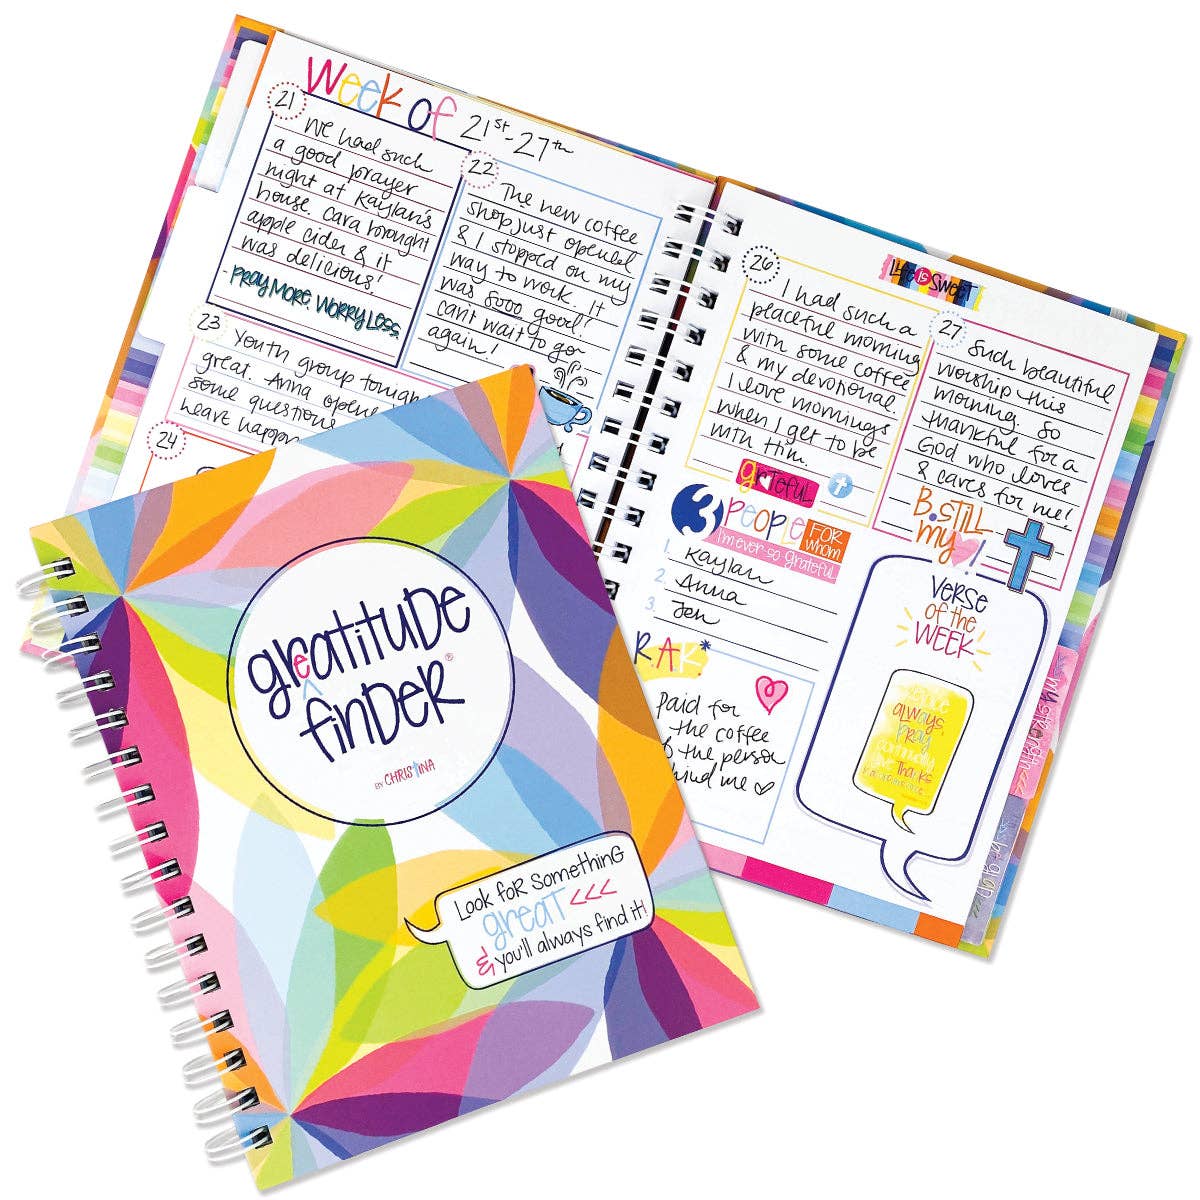 Week of 21st-27th
21
We had such
a good prayer
night at Kaylan's
house. Cara brought
apple cider & it
was delicious!
-PRAY MORE. WORRY LESS.
22
The new coffee
shop just opened
& I stopped on my
way to work. It
was sooo good!
can't wait to go
again!
23
Youth group tonight
great. Anna opene
some questions
heart happ
24
26
I had such a
peaceful morning
with some coffee
& my devotional.
I love mornings
when I get to be
with Him.
grateful
Life is Sweet
27
Such beautiful
worship this
morning. So
thankful for a
God who loves
& cares for me!
B. STILL
my !
3 PEOPLE FOR whom
I'm ever-so grateful
1. Kaylan
2. Anna
3. Jen
RAK*
Paid for
the coffee
f the person
hind me
VERSE
OF the
WEEK
always
pray
continually
give thanks
greatitude
finder®
BY CHRISTINA
Look for something
great <<<
& you'll always find it!